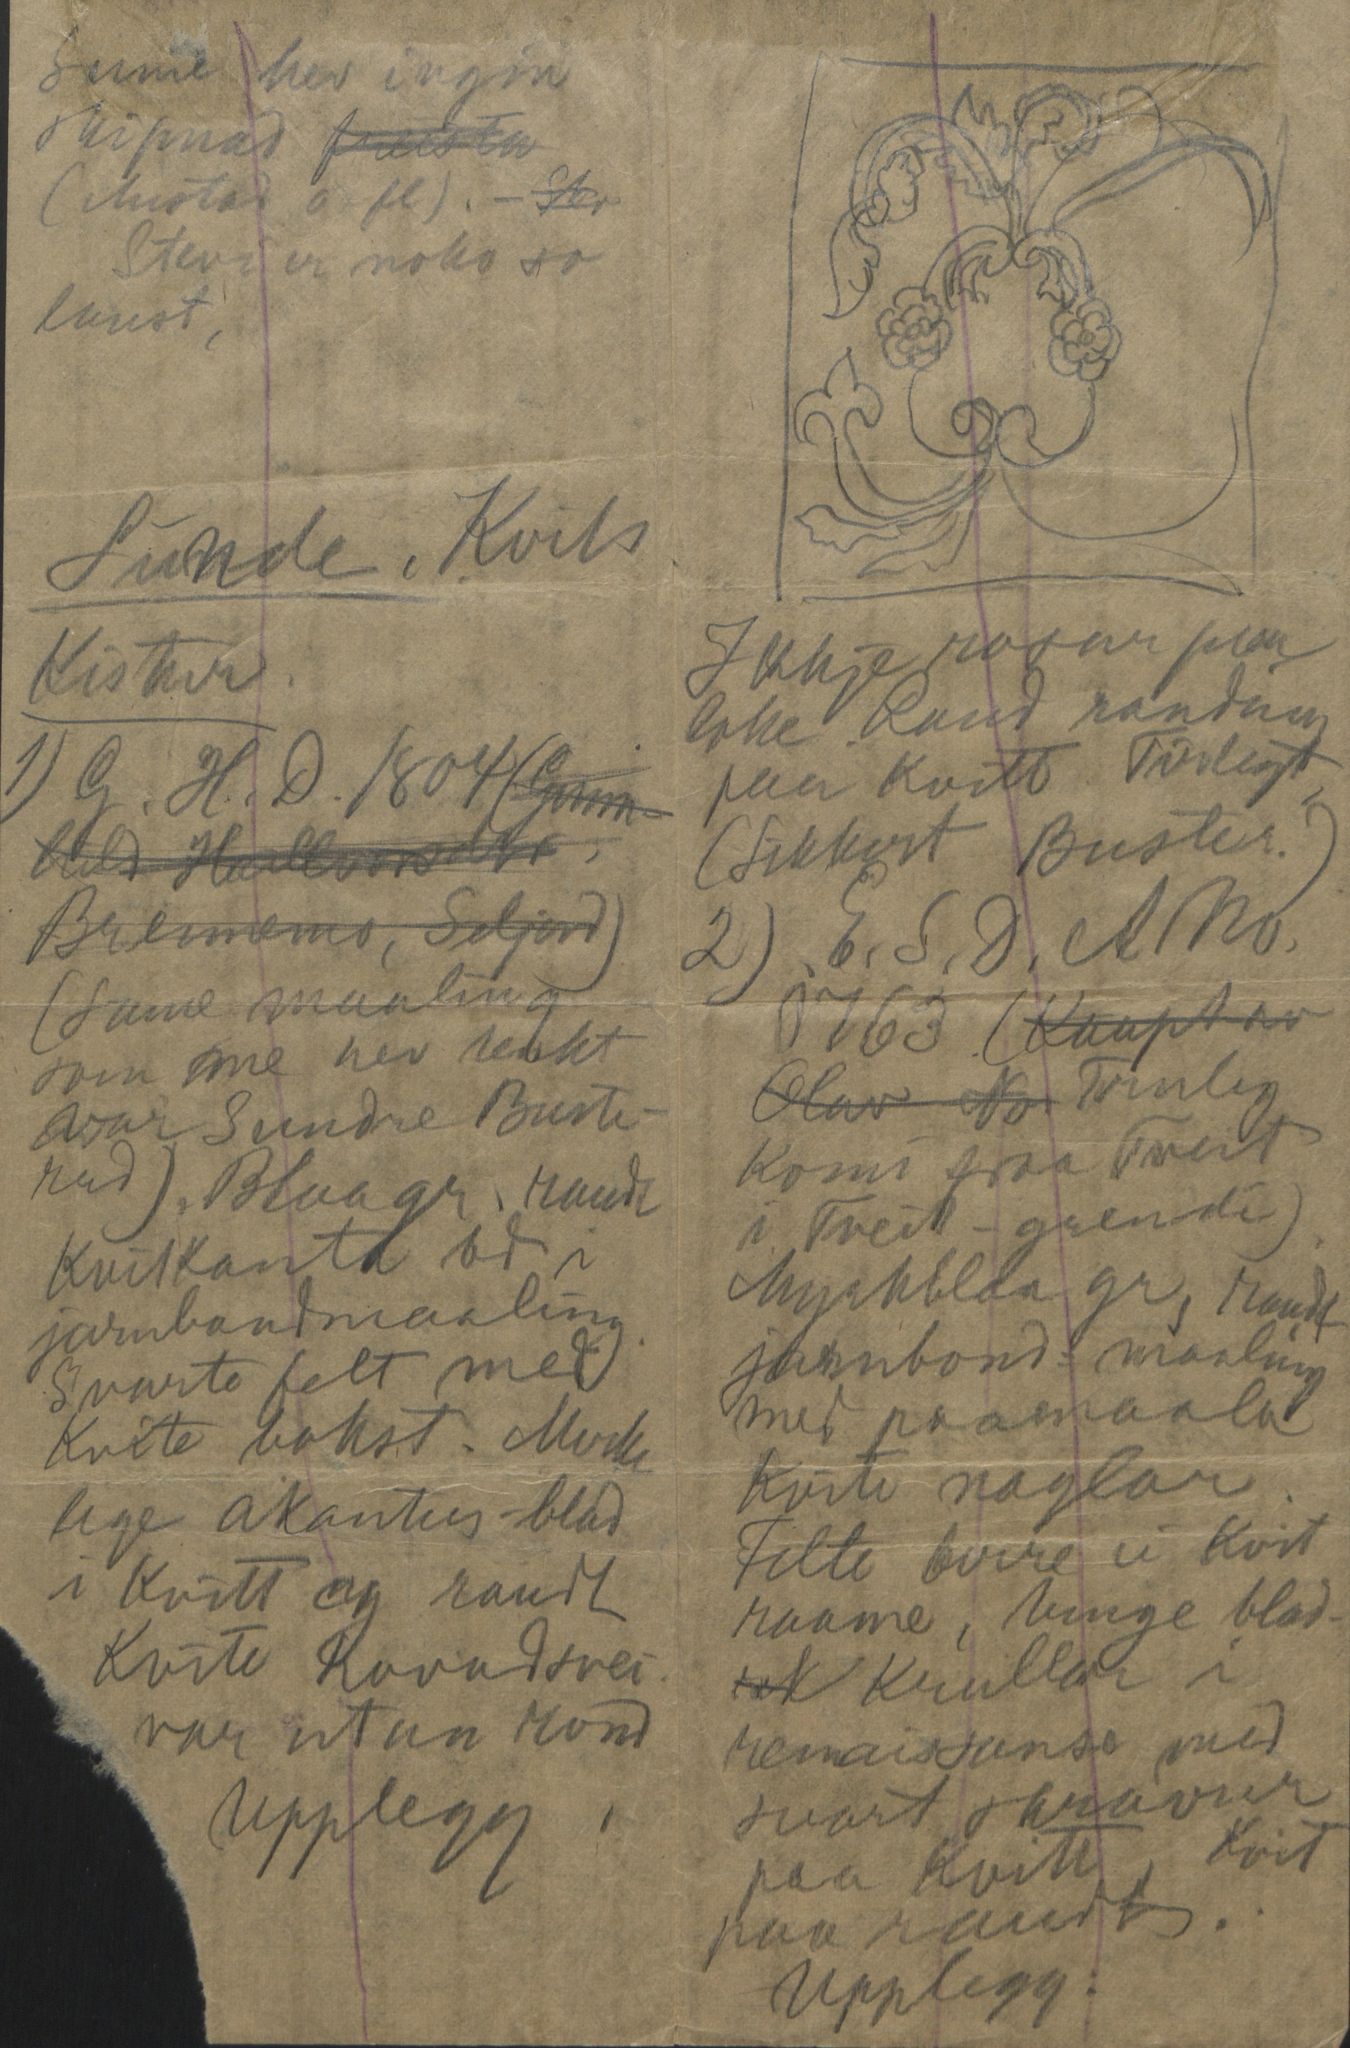 Sume hev ingin
skipnad freista
(Mustad o. fl). – Ste
Stevi er noko so
laust,
Sunde, Kvits
Kistur.
1) G. H. D. 1804 (Gunn-
hild Hallvorsdtr.
Brennemo, Seljord)
(Same maaling
som me hev
Sundre Buste-
rud). Blaa gr. raudt
Kvitkanta bd i
jarnbandmaaling.
Svarte felt med
Kvite vokst. Merke
lege akantus-blad
i Kvitt og raudt
Kvite Kovadsvei
var utan rond
Upplegg,
Ikkje rosur paa
loke. Raud randing
paa Kvitt. Tirlegt,
(Sikkert Buster.)
2) E. S. D. A No.
1763 (Kaupt av
Olav No Truleg
Komi fraa Tveit
i Tveit-grendi).
Myrkblaa gr, raudt
jarnbond-maaling
med paamaala
Kvite naglar.
Felte bere i Kvit
raame, tunge blad-
Krullar i
renaissanse med
svart skravur
paa Kvitt, Kvit
paa raudt.
Upplegg: